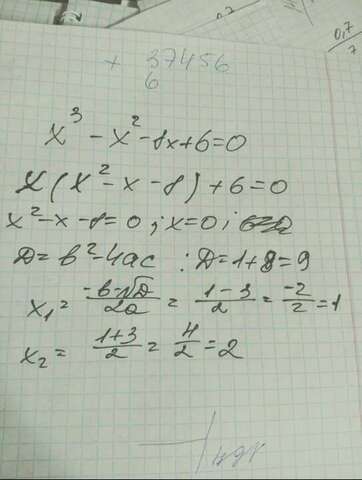 + 37456
6
x³ - x² - 8x + 6 = 0
x(x² - x - 8) + 6 = 0
x² - x - 8 = 0 ; x = 0 ;
D = b² - 4ac ; D = 1 + 8 = 9
x₁ = -b-√D/2a = 1-3/2 = -2/2 = 1
x₂ = 1+3/2 = 4/2 = 2
0,7
7